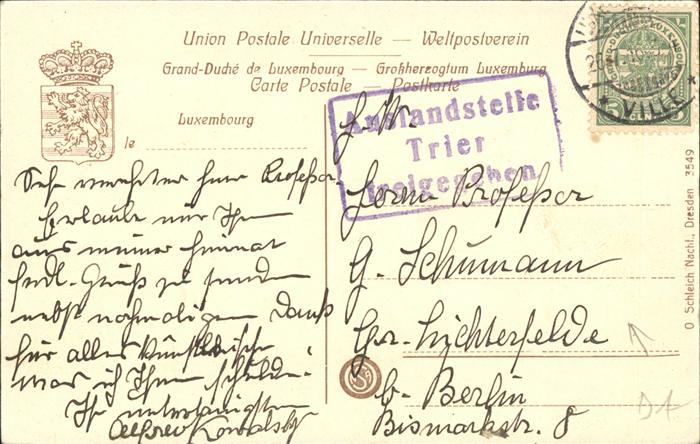 Union Postale Universelle — Weltpostverein
Grand-Duché de Luxembourg — Großherzogtum Luxemburg
Carte Postale — Postkarte
Luxembourg
le
Auslandstelle
Trier
freigegeben
VILLE
Sehr verehrter Herr Professor
Erlaube mir Ihnen
aus meiner Heimat
frdl. Gruß zu senden
nebst nochmaligem Dank
für alles Künstlerische
was ich Ihnen schulde.
Ihr untertänigster
Alfred
Herrn Professor
G. Schumann
Gr. Lichterfelde
b. Berlin
Bismarkstr. 8
O. Schleich Nachf., Dresden 3549